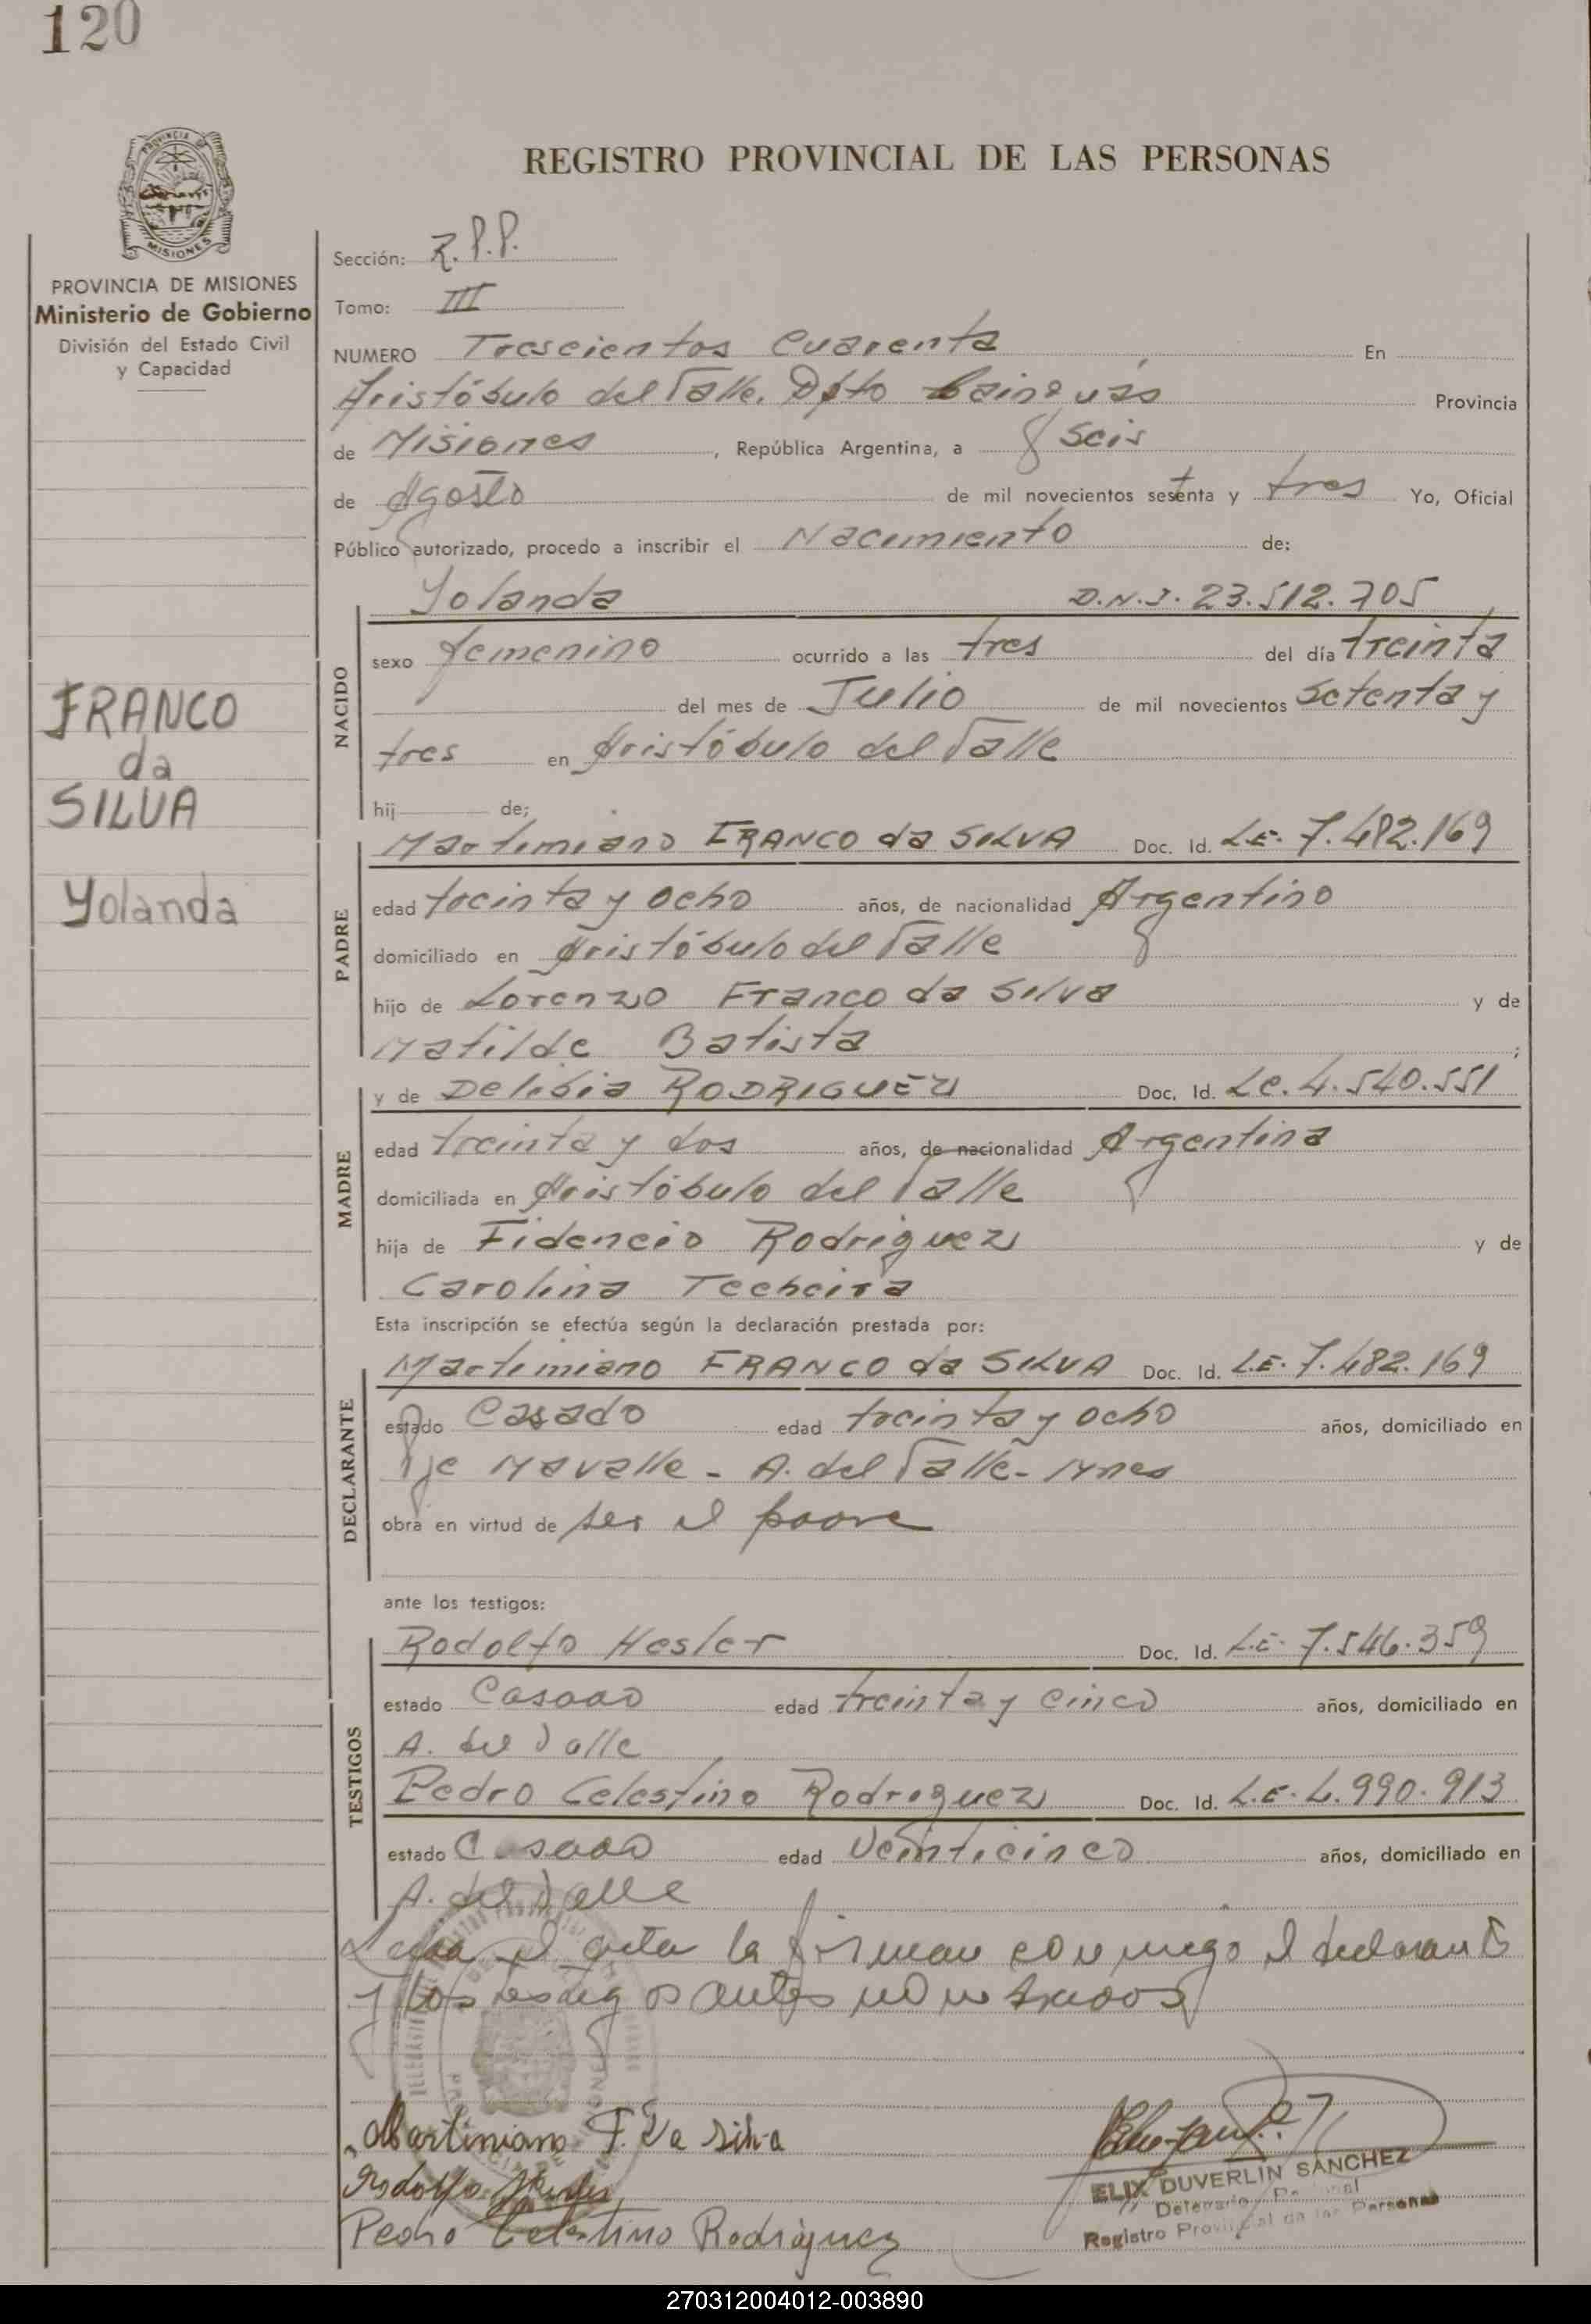 120
PROVINCIA DE
MISIONES
PROVINCIA DE MISIONES
Ministerio de Gobierno
División del Estado Civil
y Capacidad
FRANCO
da
SILVA
Yolanda
REGISTRO PROVINCIAL DE LAS PERSONAS
Sección: R.P.P.
Tomo: III
NUMERO Trescientos Cuarenta En
Aristóbulo del Valle. Dpto Cainguás Provincia
de Misiones, República Argentina, a Seis
de Agosto de mil novecientos setenta y tres Yo, Oficial
Público autorizado, procedo a inscribir el Nacimiento de:
NACIDO
Yolanda D.N.I. 23.512.705
sexo femenino ocurrido a las tres del día treinta
del mes de Julio de mil novecientos setenta y
tres en Aristóbulo del Valle
hij de;
PADRE
Martimiano FRANCO da SILVA Doc. Id. L.E. 7.482.169
edad treinta y ocho años, de nacionalidad Argentino
domiciliado en Aristóbulo del Valle
hijo de Lorenzo Franco da Silva y de
Matilde Batista ;
MADRE
y de Delibia RODRIGUEZ Doc. Id. Lc. 4.540.551
edad treinta y dos años, de nacionalidad Argentina
domiciliada en Aristóbulo del Valle
hija de Fidencio Rodriguez y de
Carolina Techeira
Esta inscripción se efectúa según la declaración prestada por:
DECLARANTE
Martimiano FRANCO da SILVA Doc. Id. L.E. 7.482.169
estado Casado edad treinta y ocho años, domiciliado en
Pje Mavalle - A. del Valle - Mnes
obra en virtud de ser el padre
ante los testigos:
TESTIGOS
Rodolfo Hesler Doc. Id. L.E. 7.546.359
estado Casado edad treinta y cinco años, domiciliado en
A. del Valle
Pedro Celestino Rodriguez Doc. Id. L.E. 4.990.913
estado Casado edad Veinticinco años, domiciliado en
A. del Valle
Leída el acta la firman conmigo el declarante
y los testigos antes nombrados
Martiniano F. Da Silva
Rodolfo
Pedro Celestino Rodriguez
ELIX DUVERLIN SANCHEZ
Registro Provincial de las Personas
270312004012-003890